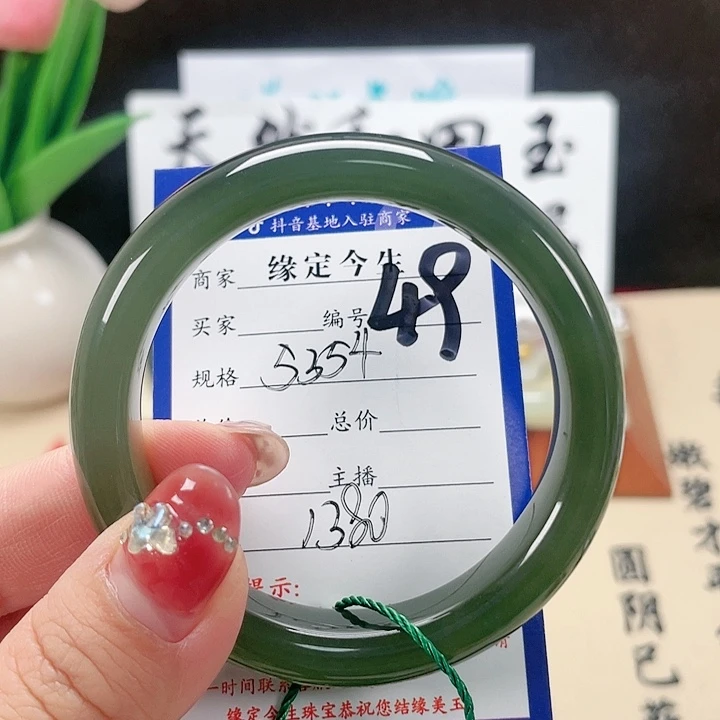 天然和田玉
抖音基地入驻商家
商家 缘定今生
买家 编号 49
规格 5354
总价
主播
1380
提示:
一时间联系
缘定今生珠宝恭祝您结缘美玉
嫩碧才平
圆阴已